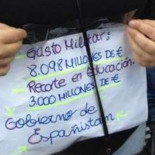 Gasto Militar:
8.098 MILLONES DE €
Recorte en Educación:
3.000 MILLONES DE €
Gobierno de
Españistán